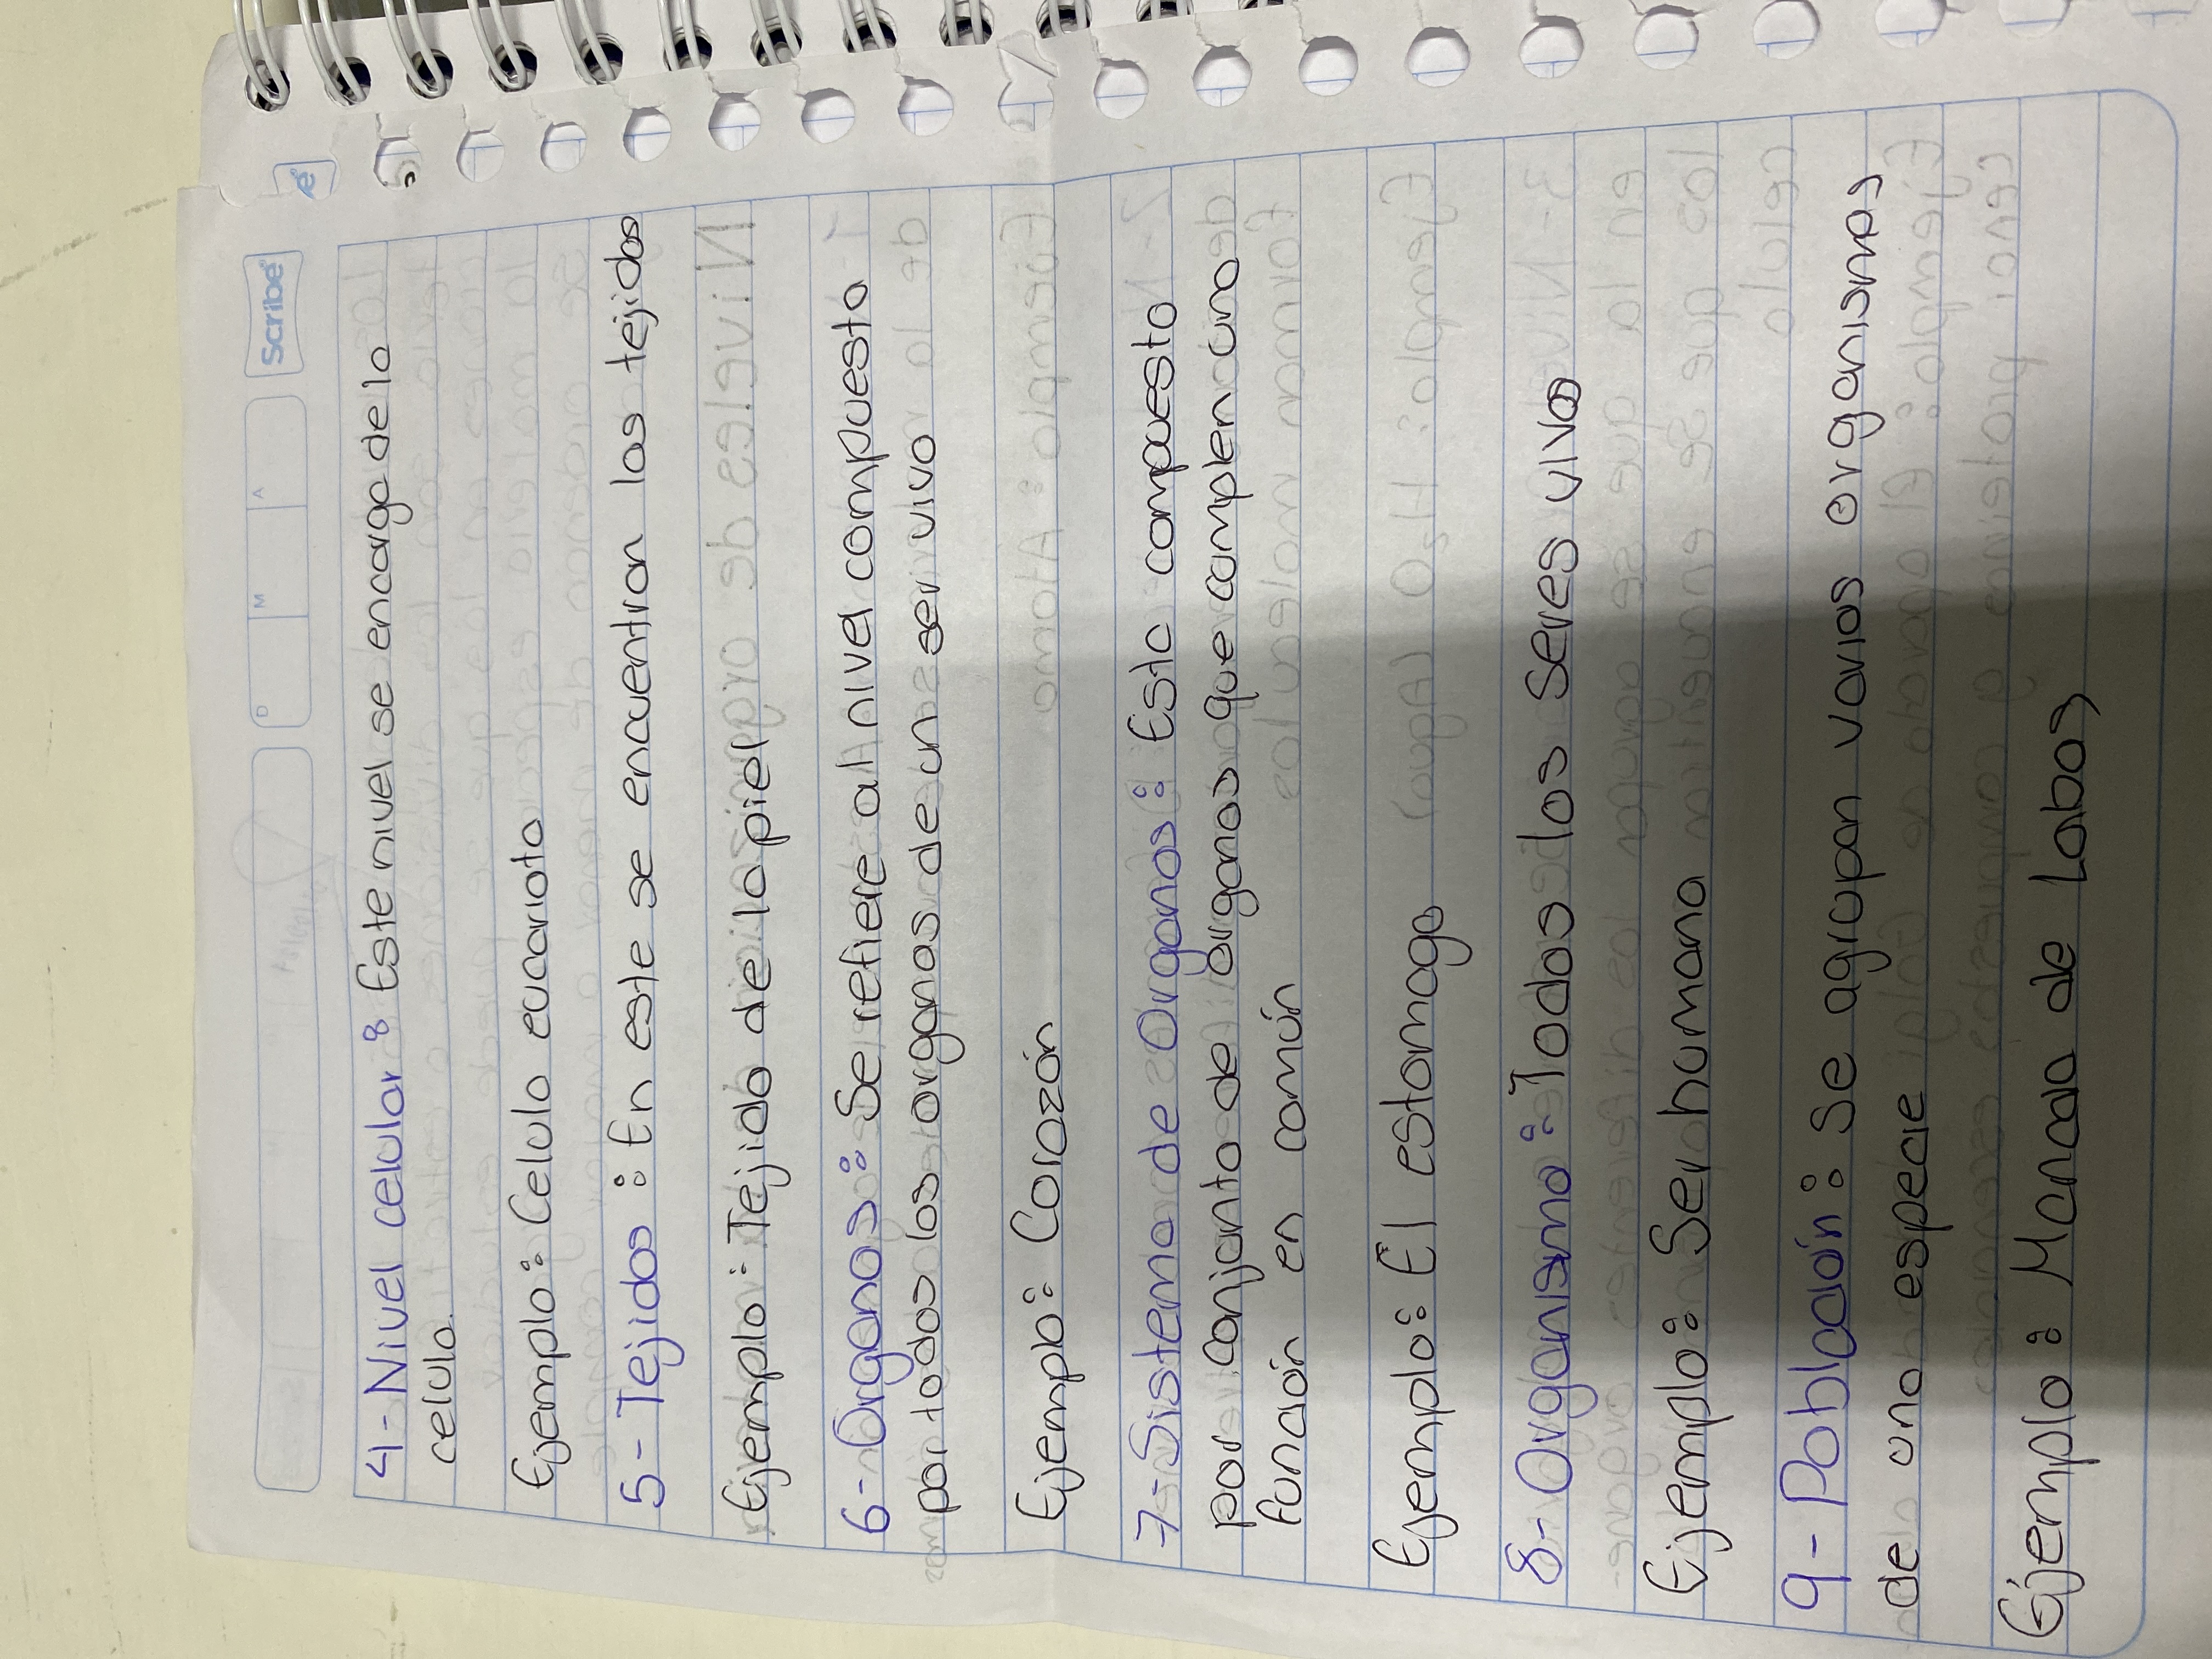 Scribe
D M A
4-Nivel celular: Este nivel se encarga de la
celula.
Ejemplo: Celula eucariota
5-Tejidos: En este se encuentran los tejidos
Ejemplo: Tejido de la piel
6-Organos: Se refiere al nivel compuesto
por todos los organos de un ser vivo
Ejemplo: Corazón
7-Sistema de Organos: Esta compuesto
por conjunto de organos que complen una
función en común
Ejemplo: El estomago
8-Organismo: Todos los seres vivos
Ejemplo: Ser humano
9-Población: Se agrupan varios organismos
de una especie
Ejemplo: Manada de Lobos